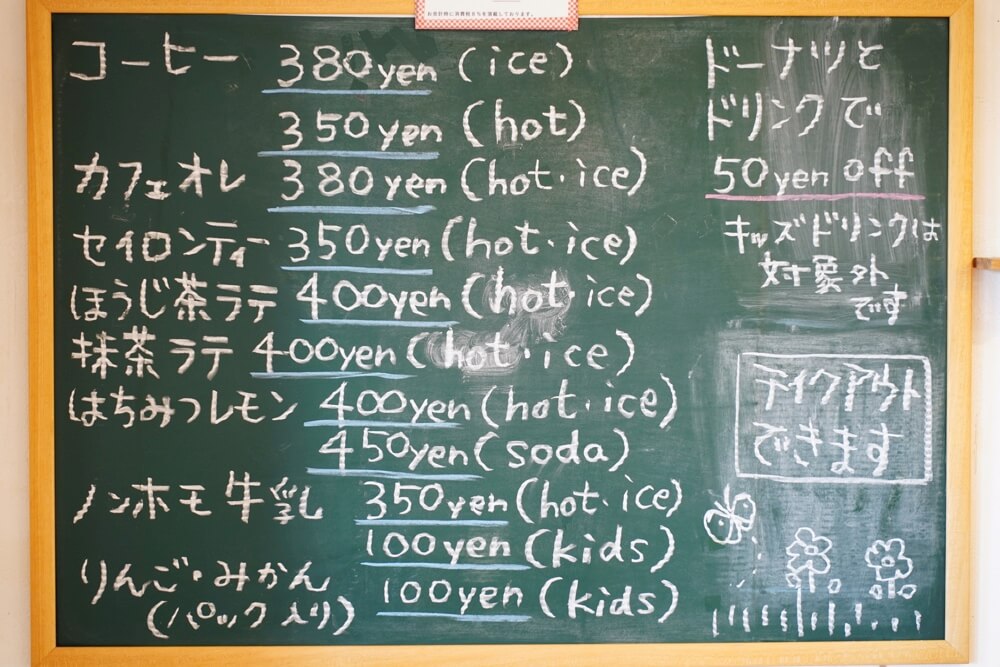 お会計時に消費税8%を頂戴しております。
コーヒー 380yen (ice)
350yen (hot)
カフェオレ 380yen (hot・ice)
セイロンティー 350yen (hot・ice)
ほうじ茶ラテ 400yen (hot・ice)
抹茶ラテ 400yen (hot・ice)
はちみつレモン 400yen (hot・ice)
450yen (soda)
ノンホモ牛乳 350yen (hot・ice)
100yen (kids)
りんご・みかん 100yen (kids)
(パック入り)
ドーナツと
ドリンクで
50yen off
キッズドリンクは
対象外
です
テイクアウト
できます